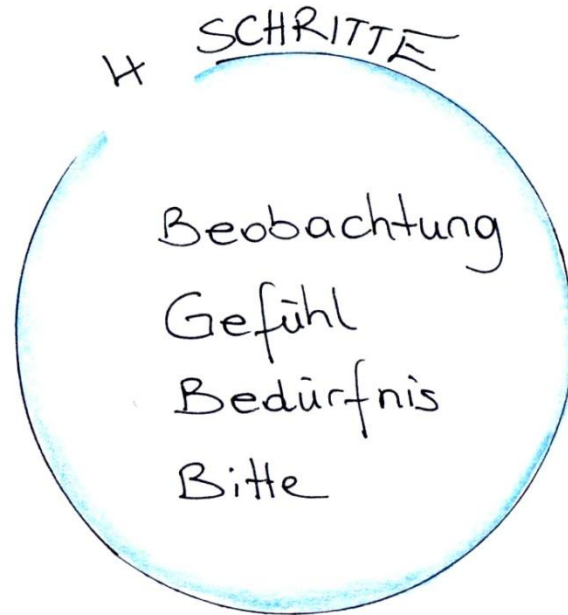 4 SCHRITTE
Beobachtung
Gefühl
Bedürfnis
Bitte